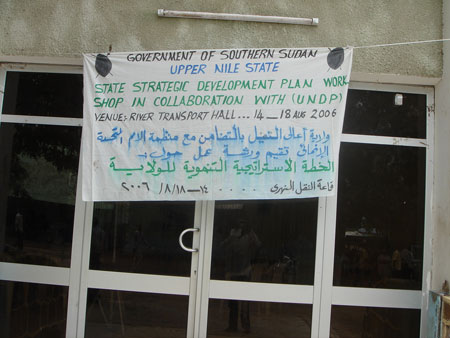 GOVERNMENT OF SOUTHERN SUDAN
UPPER NILE STATE
STATE STRATEGIC DEVELOPMENT PLAN WORK
SHOP IN COLLABORATION WITH (UNDP)
VENUE: RIVER TRANSPORT HALL... 14 — 18 AUG 2006
ولاية أعالى النيل بالتضامن مع منظمة الامم المتحدة
الإنمائى تقيم ورشة عمل حول :-
الخطة الاستراتيجية التنموية للولاية
قاعة النقل النهرى . . . . ١٤ — ١٨/٨/٢٠٠٦